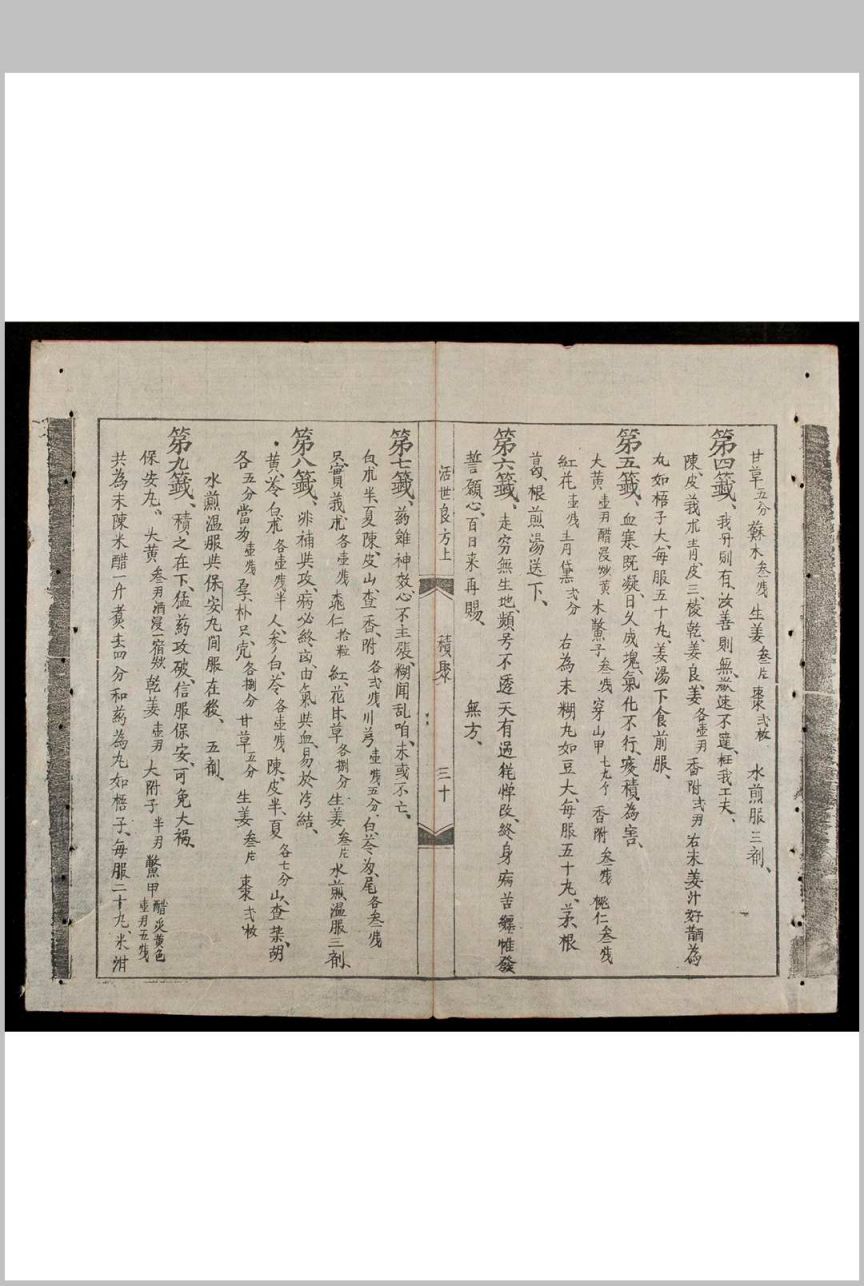 甘草五分 蘇木叁戔 生姜叁片 棗弍枚 水煎服三剤、
第四籤、我丹則有、汝善則無、欲速不達、枉我工夫、
陳皮莪朮青皮三棱乾姜良姜各壶刃 香附弍刃 右末姜汁好醋為
丸如梧子大、每服五十丸、姜湯下食前服、
第五籤、血寒既凝、日久成塊、氣化不行、痰積為害、
大黃壶刃醋浸炒黃 木鱉子叁戔 穿山甲七九个 香附叁戔 桃仁叁戔
紅花壶戔 青黛弍分 右為末糊丸如豆大、每服五十丸、茅根
葛根煎湯送下、
第六籤、走穷無生地、頻号不透天、有過能悍改、終身病苦纏、惟發
誓願心、百日来再賜、 無方、
活世良方上 積聚 三十
第七籤、葯雖神效、心不主張、糊聞乱咱、未或不亡、
白朮半夏陳皮山查香附各弍戔 川芎壶戔五分 白苓匆尾各叁戔
只實莪朮各壶戔 桃仁拾粒 紅花甘草各捌分 生姜叁片 水煎温服三剤、
第八籤、非補與攻、病必終凶、由氣與血、易於泻結、
黃芩白朮各壶戔半 人參白苓各壶戔 陳皮半夏各七分 山查柴胡
各五分 當匆壶戔 厚朴只壳各捌分 甘草五分 生姜叁片 棗弍枚
水煎温服與保安丸間服在後、五剤、
第九籤、積之在下、猛葯攻破、信服保安、可免大禍、
保安丸、大黃叁刃酒浸一宿炒 乾姜壶刃 大附子半刃 鱉甲醋炙黃色壶刃五戔
共為末陳米醋一升煮去四分和葯為丸如梧子、每服二十丸、米泔